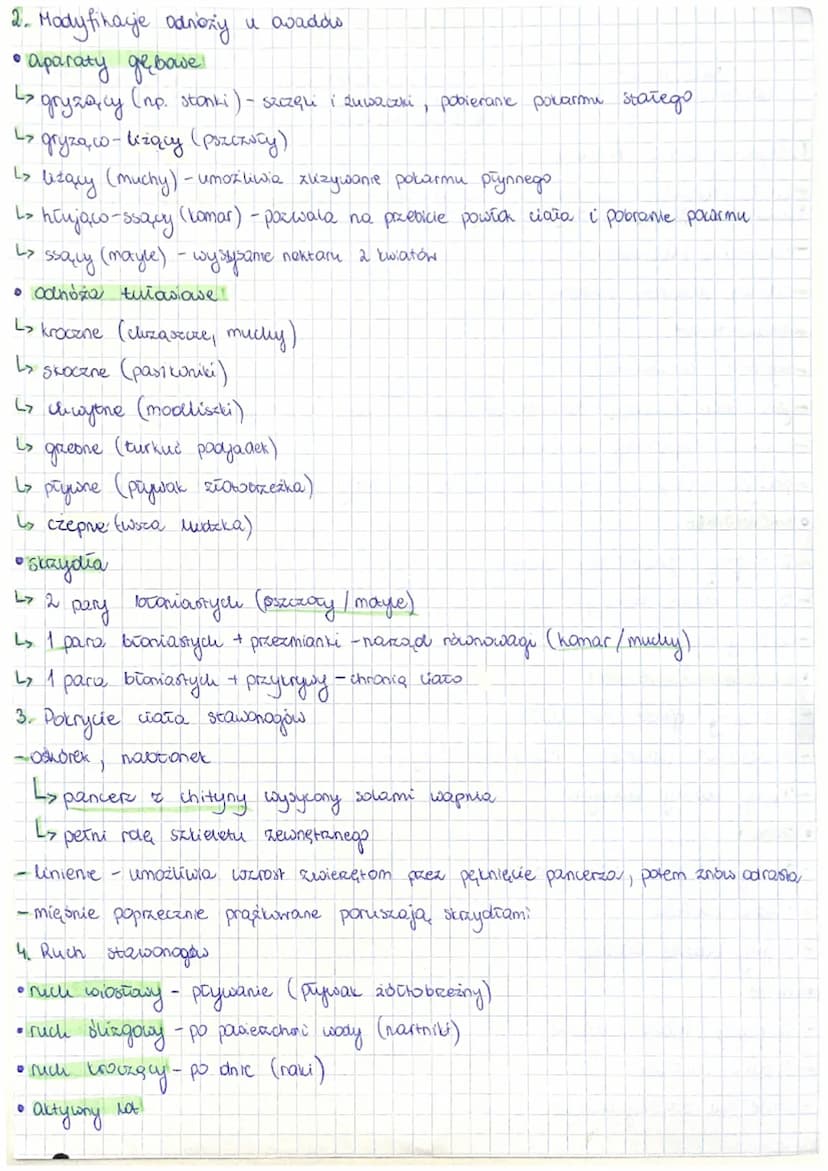 2. Modyfikacje odnóży u owadów
• aparaty gębowe:
↳ gryzący (np. stonki) - szczęki i żuwaczki, pobieranie pokarmu stałego
↳ gryząco-liżący (pszczoły)
↳ liżący (muchy) - umożliwia zlizywanie pokarmu płynnego
↳ kłująco-ssący (komar) - pozwala na przebicie powłok ciała i pobranie pokarmu
↳ ssący (motyle) - wysysanie nektaru z kwiatów
• odnóża tułowiowe:
↳ kroczne (chrząszcze, muchy)
↳ skoczne (pasikoniki)
↳ chwytne (modliszki)
↳ grzebne (turkuć podjadek)
↳ pływne (pływak żółtobrzeżka)
↳ czepne (wsza ludzka)
• skrzydła
↳ 2 pary błoniastych (pszczoły / motyle)
↳ 1 para błoniastych + przezmianki - narząd równowagi (komar/muchy)
↳ 1 para błoniastych + przykrywy - chronią ciało
3. Pokrycie ciała stawonogów
- oskórek, nabłonek
↳ pancerz z chityny wysycony solami wapnia
↳ pełni rolę szkieletu zewnętrznego
- linienie - umożliwia wzrost zwierzętom przez pęknięcie pancerza, potem znów odrasta
- mięśnie poprzecznie prążkowane poruszają skrzydłami
4. Ruch stawonogów
• ruch wiosłowy - pływanie (pływak żółtobrzeżny)
• ruch ślizgowy - po powierzchni wody (nartniki)
• ruch kroczący - po dnie (raki)
• aktywny lot